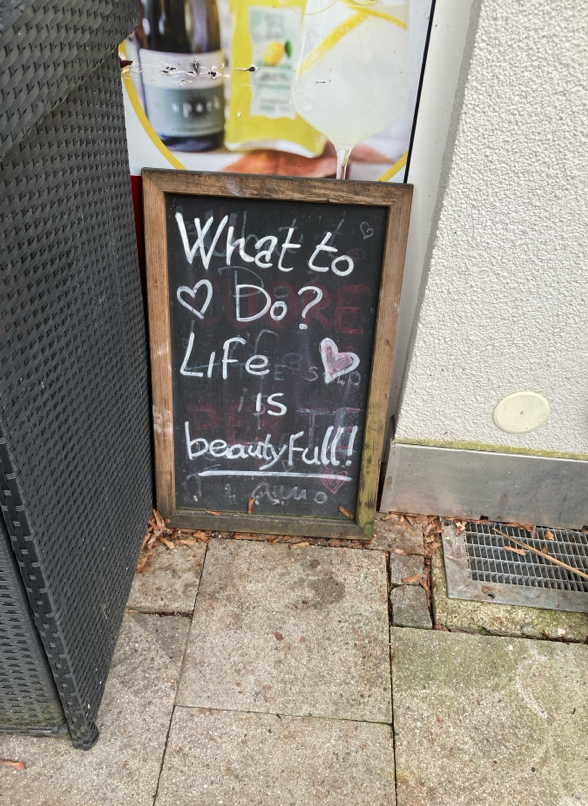 What to
Do?
Life
is
beautyfull!